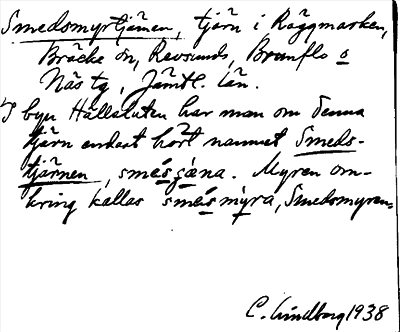 Smedsmyrtjärnen, tjärn i Räggmarken,
Bräcke sn, Revsunds, Brunflo o
Näs tg, Jämtl. län.
I byn Hållsluten har man om denna
tjärn endast hört namnet Smeds-
tjärnen, smésʒæna. Myren om-
kring kallas smésmyra, Smedsmyren.
C. Lindberg 1938